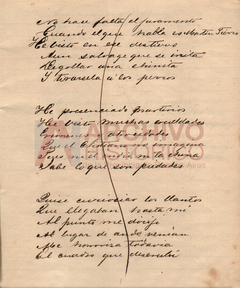 No hace falta el juramento
Cuando el que habla es Martin Fierro
He visto en ese destierro
A un salvage que se irrita
Degollar una chinita
Y tirarsela á los perros
He presenciado martirios
He visto muchas crueldades
Crímenes y
Que el cristiano no imagina
Pues ni el indio ni la china
Sabe lo que son piedades
Quise curiosiar los llantos
Que llegaban hasta mi
Al punto me dirigí
Al lugar de ande venian
Me horroriza todavia
El cuadro que descubrí
ARCHIVO
HISTÓRICO